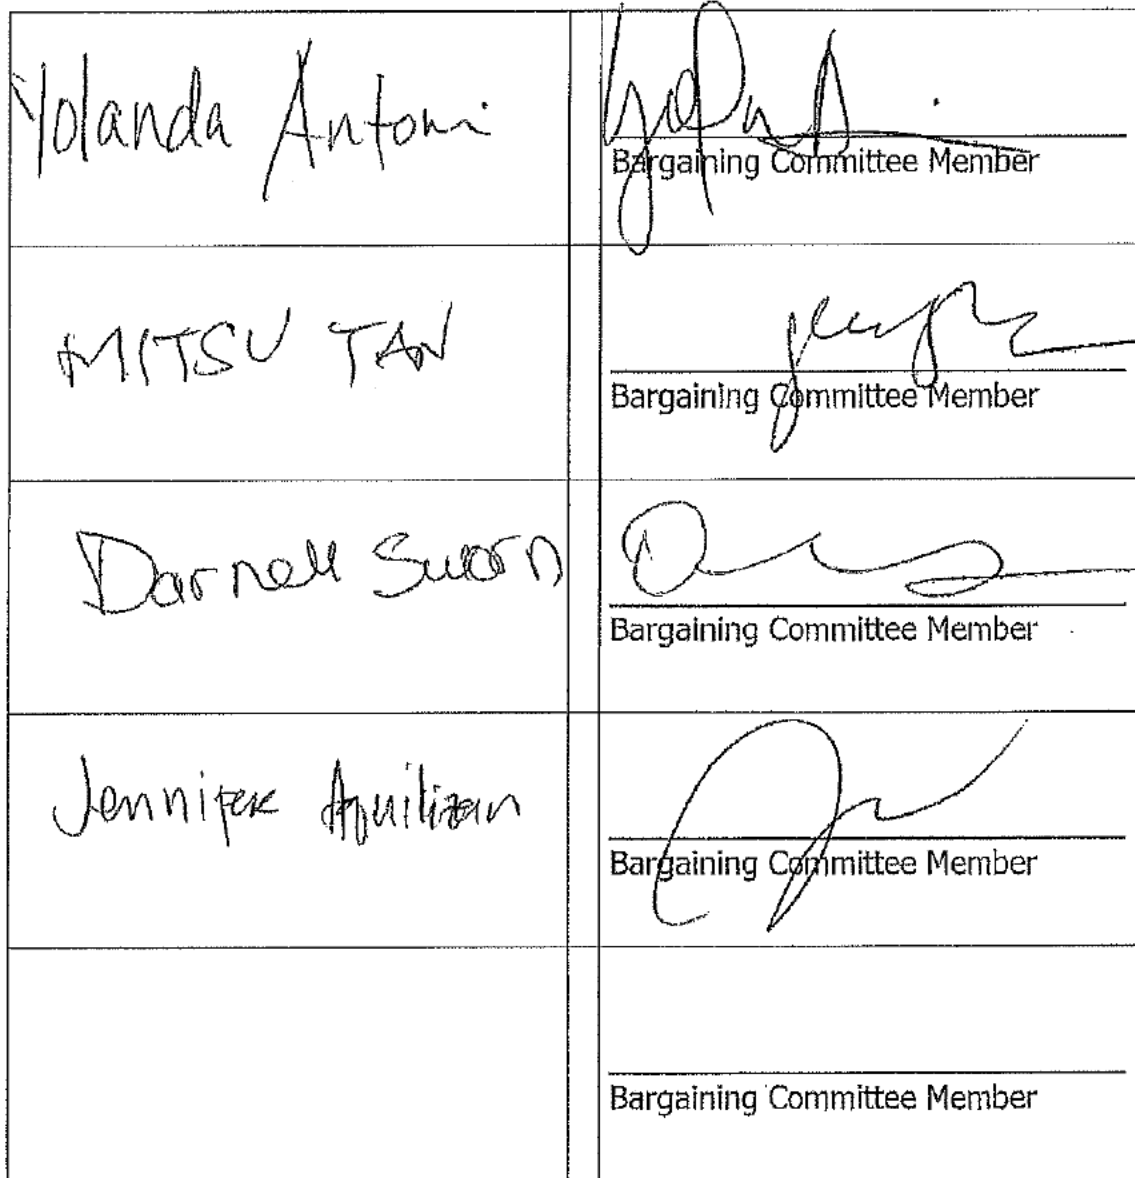 Yolanda Antoni
Bargaining Committee Member
MITSU TAN
Bargaining Committee Member
Darnell Sworn
Bargaining Committee Member
Jennifer Aquilizan
Bargaining Committee Member
Bargaining Committee Member